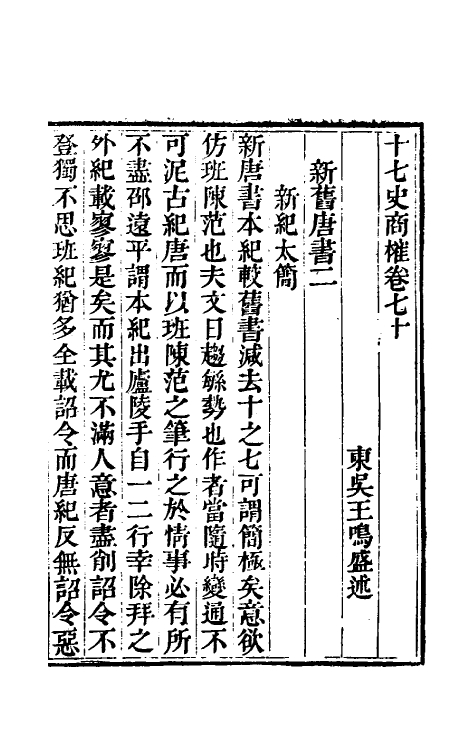 十七史商榷卷七十
東吳王鳴盛述
新舊唐書二
新紀太簡
新唐書本紀較舊書減去十之七可謂簡極矣意欲
仿班陳范也夫文日趨緐勢也作者當隨時變通不
可泥古紀唐而以班陳范之筆行之於情事必有所
不盡邵遠平謂本紀出廬陵手自一二行幸除拜之
外紀載寥寥是矣而其尤不滿人意者盡削詔令不
登獨不思班紀猶多全載詔令而唐紀反無詔令惡